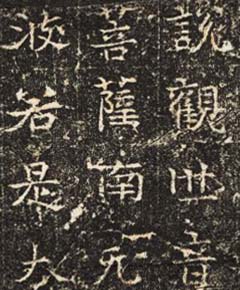 說觀世音
菩薩南无
波若是大